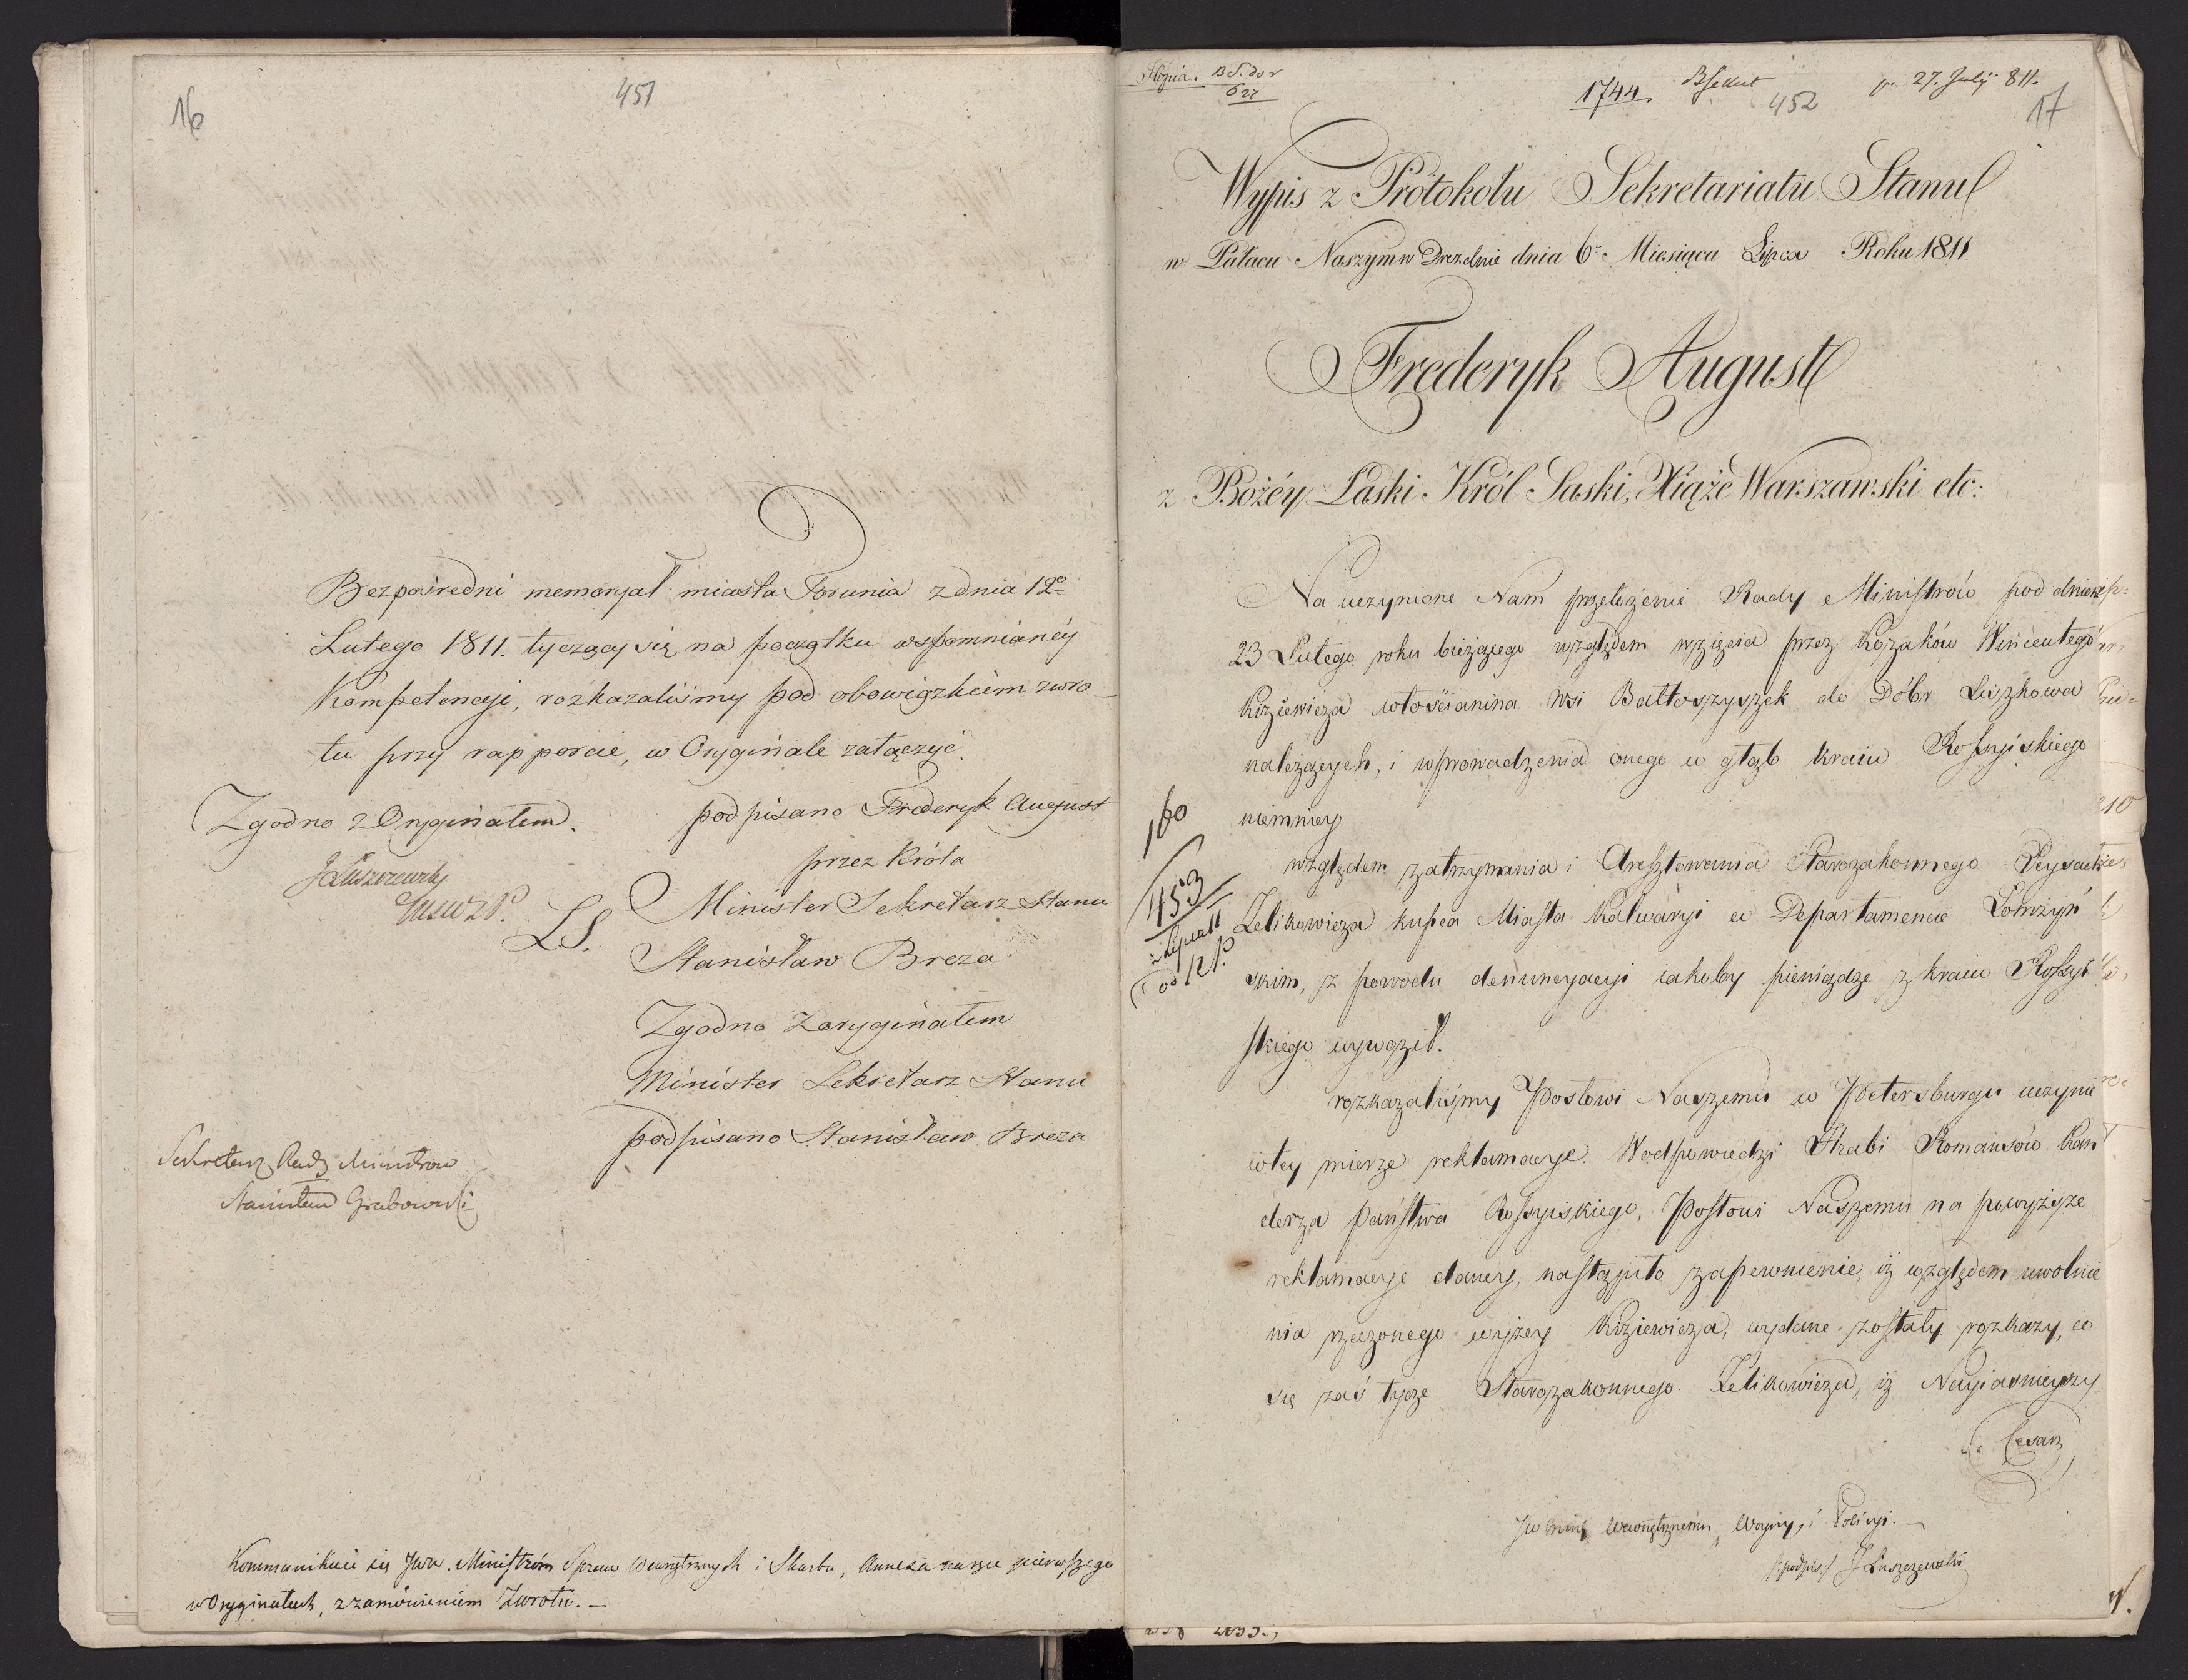 16
451
Bezpośredni memoryał miasta Torunia z dnia 12º
Lutego 1811. tyczący się na początku wspomnianéy
kompetencyi, rozkazaliśmy pod obowiązkiem zwro-
tu przy rapporcie, w Oryginale załączyć.
Zgodno z Oryginałem.
podpisano Frederyk August
przez Króla
JŁuszczewsky
Minister Sekretarz Stanu
LS.
Stanisław Breza
Zgodno z oryginałem
Minister Sekretarz Stanu
podpisano Stanisław Breza
Sekretarz Rady Ministrow
Stanisław Grabowski
Kommunikuie się Jww. Ministróm Spraw Wewnętrznych i Skarbu, Annexa razu pierwszego
w Oryginałach, z zamówieniem Zwrotu. —
Kopia.
622
1744.
452
27. July 811.
17
Wypis z Protokołu Sekretariatu Stanu
w Pałacu Naszym w Dreznie dnia 6º Miesiąca Lipca Roku 1811
Frederyk August
z Bożéy Łaski Król Saski, Xiąże Warszawski etc:
Na uczynione Nam przełożenie Rady Ministrów pod dniem
23 Lutego roku bieżącego względem wzięcia przez Kozaków Wincentego
Kiziewicza włościanina wsi Battoszyszek do Dóbr Liszkowa
należących, i wprowadzenia onego w głąb kraiu Rossyiskiego
niemniey
względem zatrzymania i Aresztowania Starozakonnego Leysera
Zelikowicza kupca Miasta Kalwaryi w Departamencie Łomżyń
skim, z powodu denuncyacyi iakoby pieniądze z kraiu Rossyi
skiego wywoził.
453
rozkazaliśmy Posłowi Naszemu w Petersburgu uczynić
w tey mierze reklamacye. W odpowiedzi Hrabi Romansów Kan
clerza państwa Rossyiskiego, Posłowi Naszemu na powyższe
reklamacye daney, nastąpiło zapewnienie, iż względem uwolnie
nia rzeczonego wyżey Kiziewicza, wydane zostały rozkazy, co
się zaś tycze Starozakonnego Zelikowicza, iż Nayiasnieyszy
Cesarz
JW Minis Wewnętrznemu, Woyny, i Policyi. —
/:podpis:/ JŁuszczewski